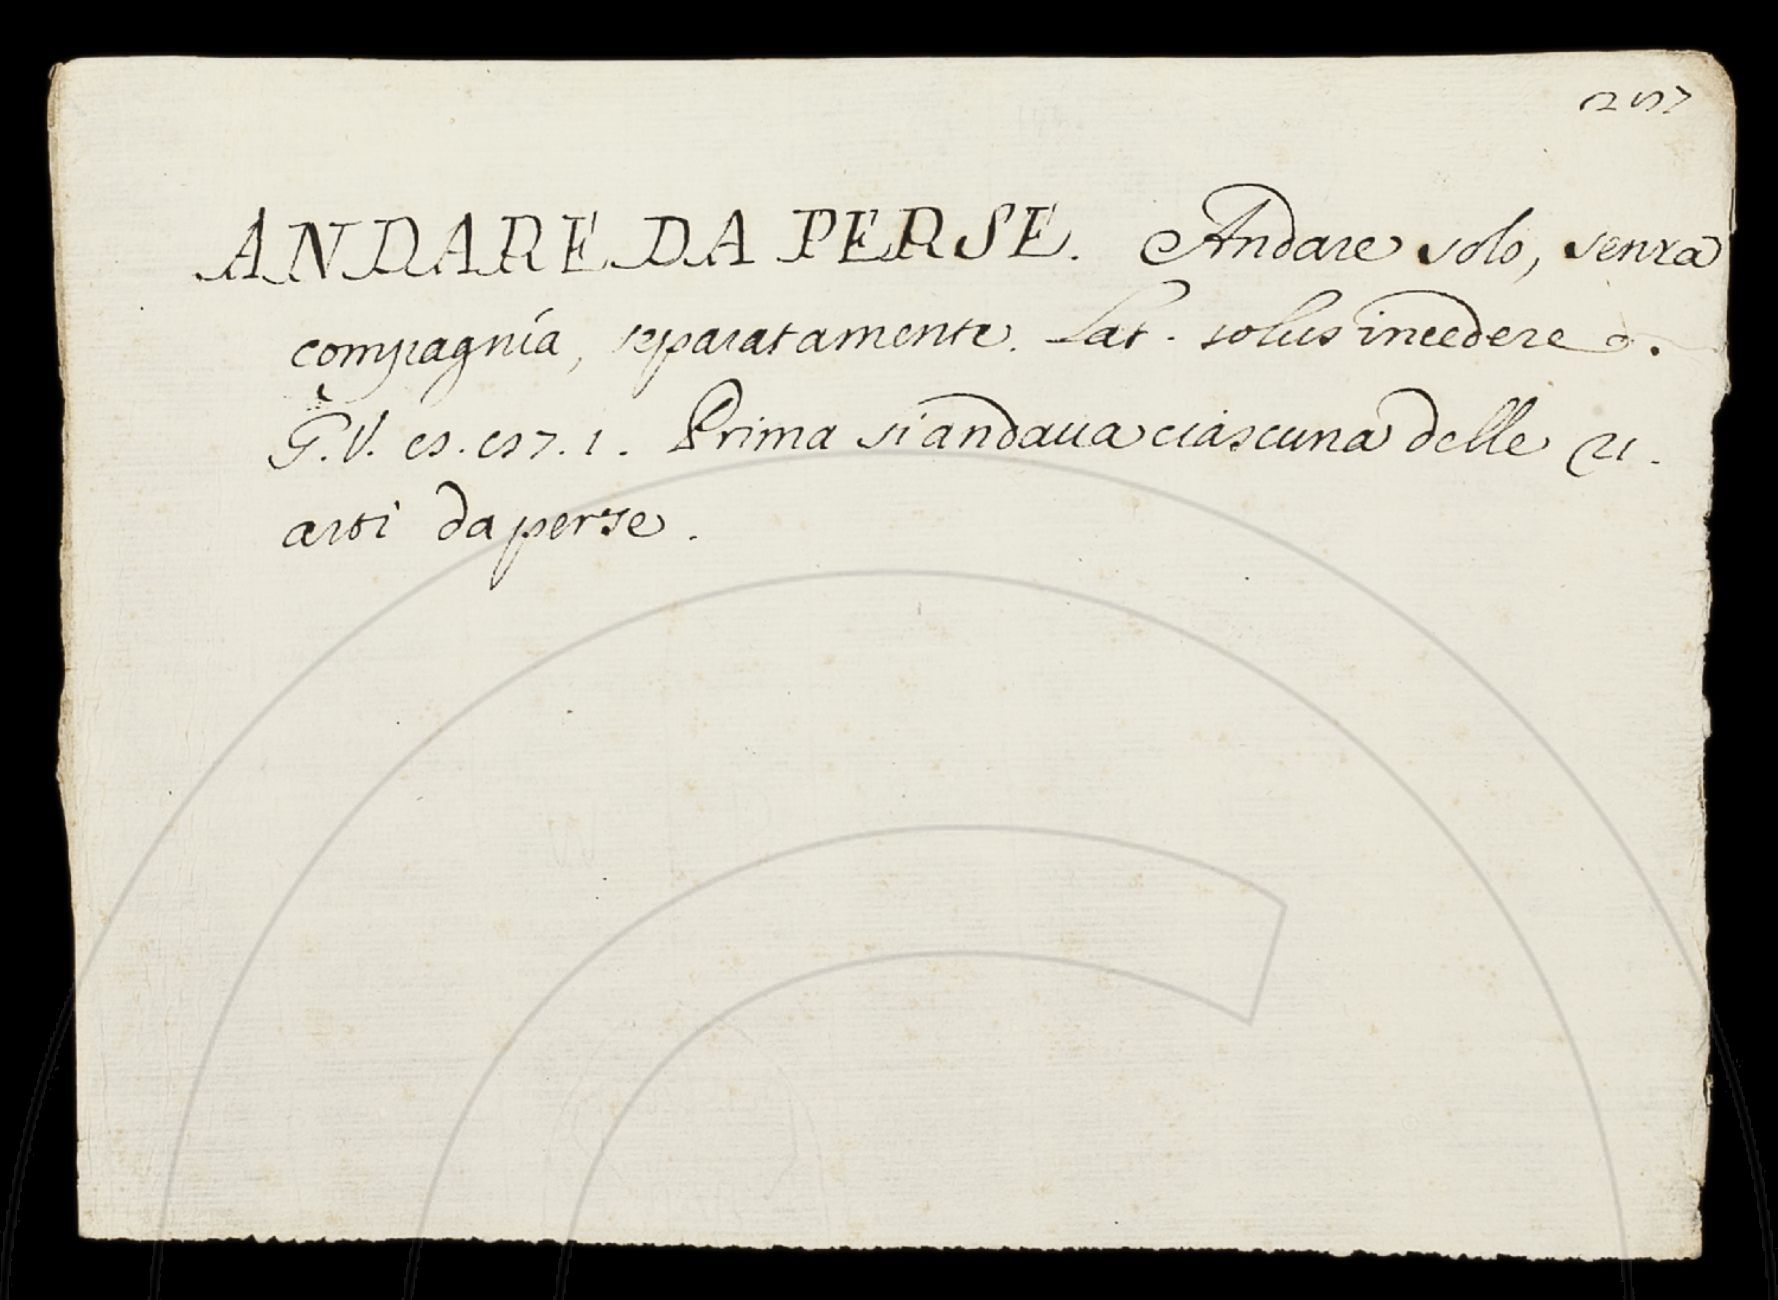 ANDARE DA PERSE. Andare solo, senza
compagnía, separatamente. Lat. solus incedere
G.V. 8. 87. 1. Prima si andaua ciascuna delle 21.
arti da perse.